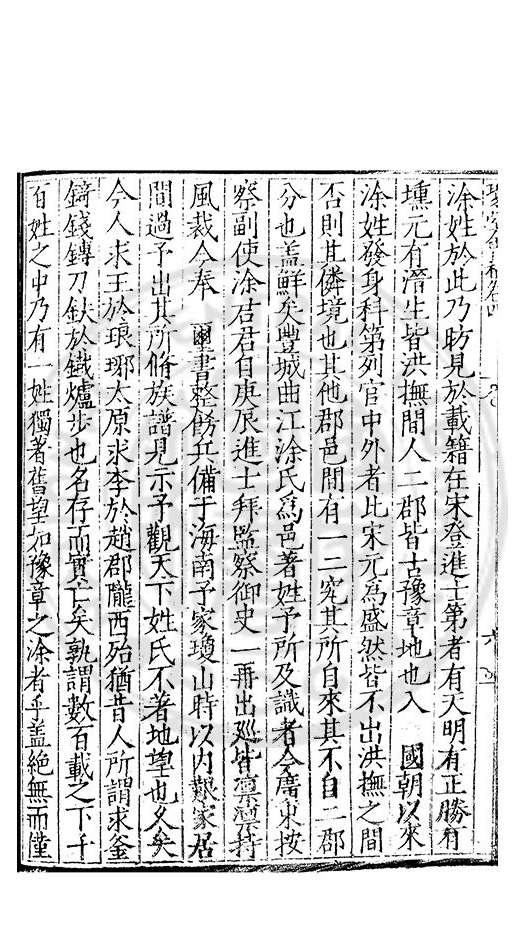 涂姓於此乃昉見於載籍在宋登進士第者有天明有正勝有
壎元有溍生皆洪撫間人二郡皆古豫章地也入 國朝以來
涂姓發身科第列官中外者比宋元爲盛然皆不出洪撫之間
否則其隣境也其他郡邑間有一二究其所自來其不自二郡
分也盖鮮矣豐城曲江涂氏爲邑著姓予所及識者今廣東按
察副使涂君君自庚辰進士拜監察御史一再出廵皆凛凛持
風裁今奉 璽書整飭兵備于海南予家瓊山時以内艱家居
間過予出其所脩族譜見示予觀天下姓氏不著地望也久矣
今人求王於琅琊太原求李於趙郡隴西殆猶昔人所謂求釜
錡錢鎛刀鈇於鐵爐步也名存而實亡矣孰謂數百載之下千
百姓之中乃有一姓獨著舊望如豫章之涂者乎盖絕無而僅